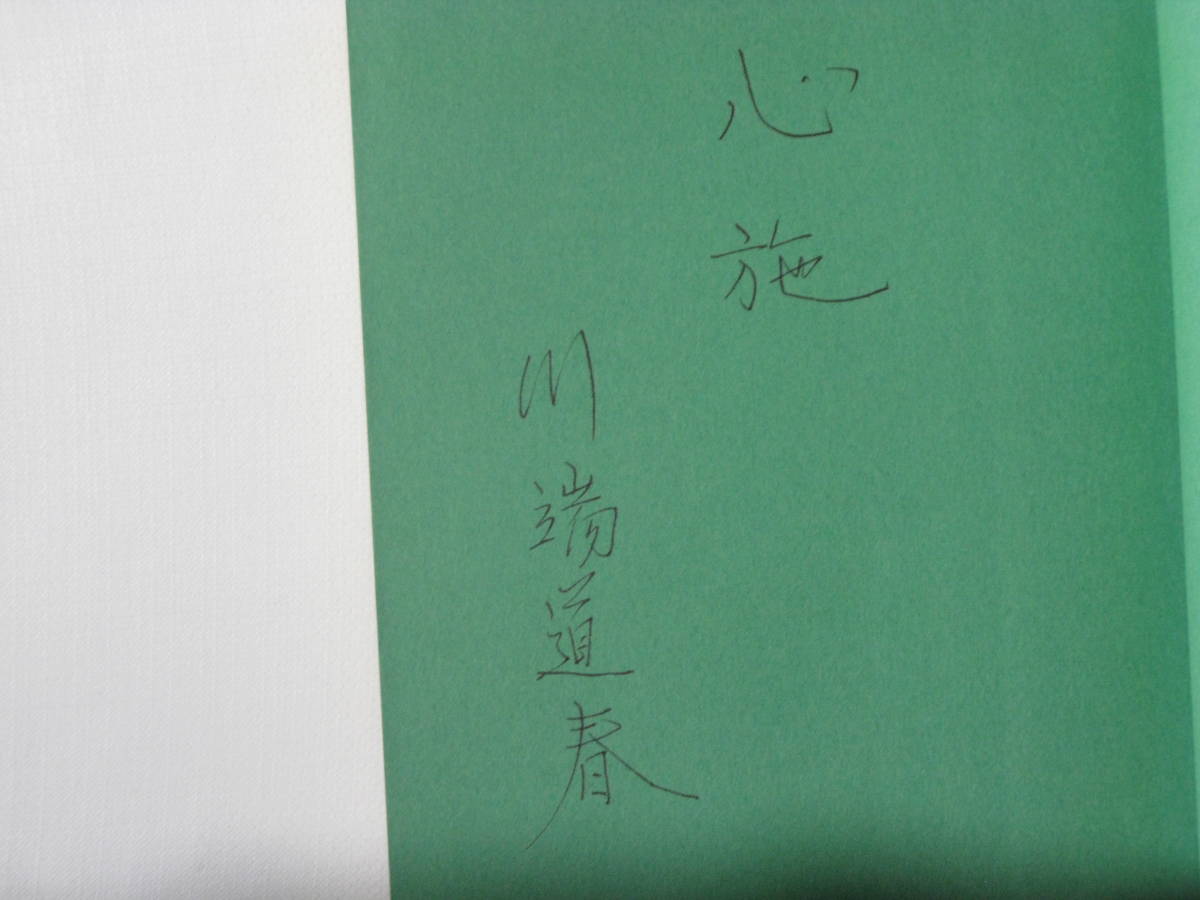 心施
川端道春